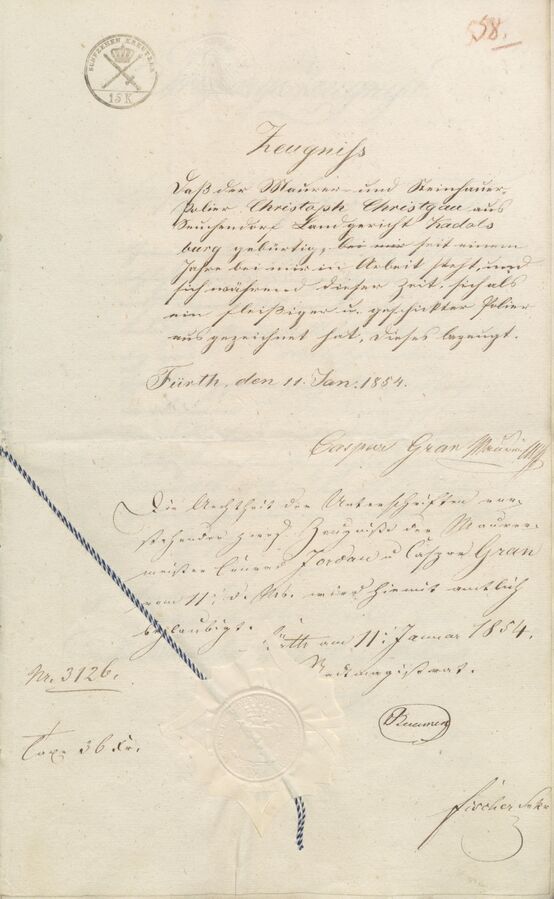 58.
FUNFZEHEN KREUTZER
15 K
Zeugniss
Daß der Maurer- und Steinhauer-
Polier Christoph Christgau aus
Seukendorf Landgericht Kadolz
burg gebürtig, bei mir seit einem
Jahre bei mir in Arbeit steht, und
sich während dieser Zeit, sich als
ein fleißiger u. geschickter Polier
ausgezeichnet hat, dieses bezeugt.
Fürth, den 11. Jan. 1854.
Caspar Gran
Die Aechtheit der Unterschriften vor-
stehender zwei Zeugniße der Maurer-
meister Conrad Jordan u Caspar Gran
vom 11. d. Ms. wird hiemit amtlich
beglaubigt. Fürth am 11. Januar 1854.
Stadtmagistrat.
Nr. 3126.
Taxe 36 Kr.
Fischer Sekr